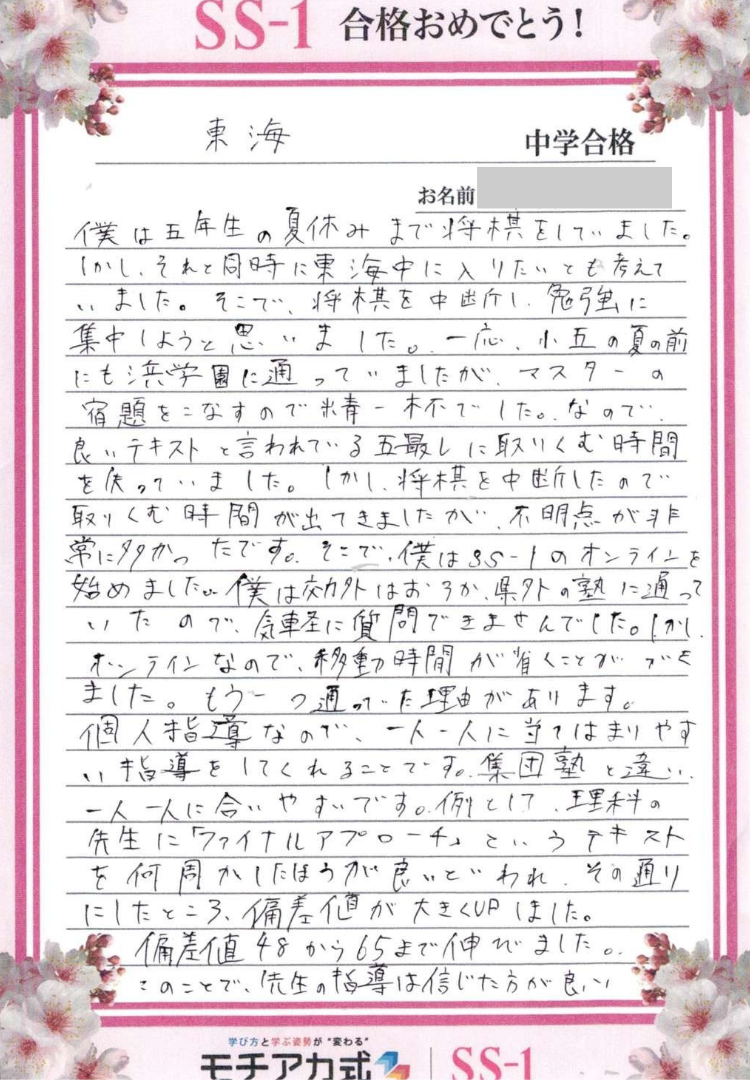 SS-1 合格おめでとう!
東海 中学合格
お名前
僕は五年生の夏休みまで将棋をしていました。
しかし、それと同時に東海中に入りたいとも考えて
いました。そこで、将棋を中断し、勉強に
集中しようと思いました。一応、小五の夏の前
にも浜学園に通っていましたが、マスターの
宿題をこなすので精一杯でした。なので、
良いテキストと言われている五最レに取りくむ時間
を失っていました。しかし、将棋を中断したので
取りくむ時間が出てきましたが、不明点が非
常に多かったです。そこで、僕はSS-1のオンラインを
始めました。僕は校外はおろか、県外の塾に通って
いたので、気軽に質問できませんでした。しかし、
オンラインなので、移動時間が省くことができ
ました。もう一つ通っていた理由があります。
個人指導なので、一人一人に当てはまりやす
い指導をしてくれることです。集団塾と違い、
一人一人に合いやすいです。例として、理科の
先生に「ファイナルアプローチ」というテキスト
を何周かしたほうが良いといわれ、その通り
にしたところ、偏差値が大きくUPしました。
偏差値48から65まで伸びました。
このことで、先生の指導は信じた方が良い
学び方と学ぶ姿勢が"変わる"
モチアカ式 SS-1